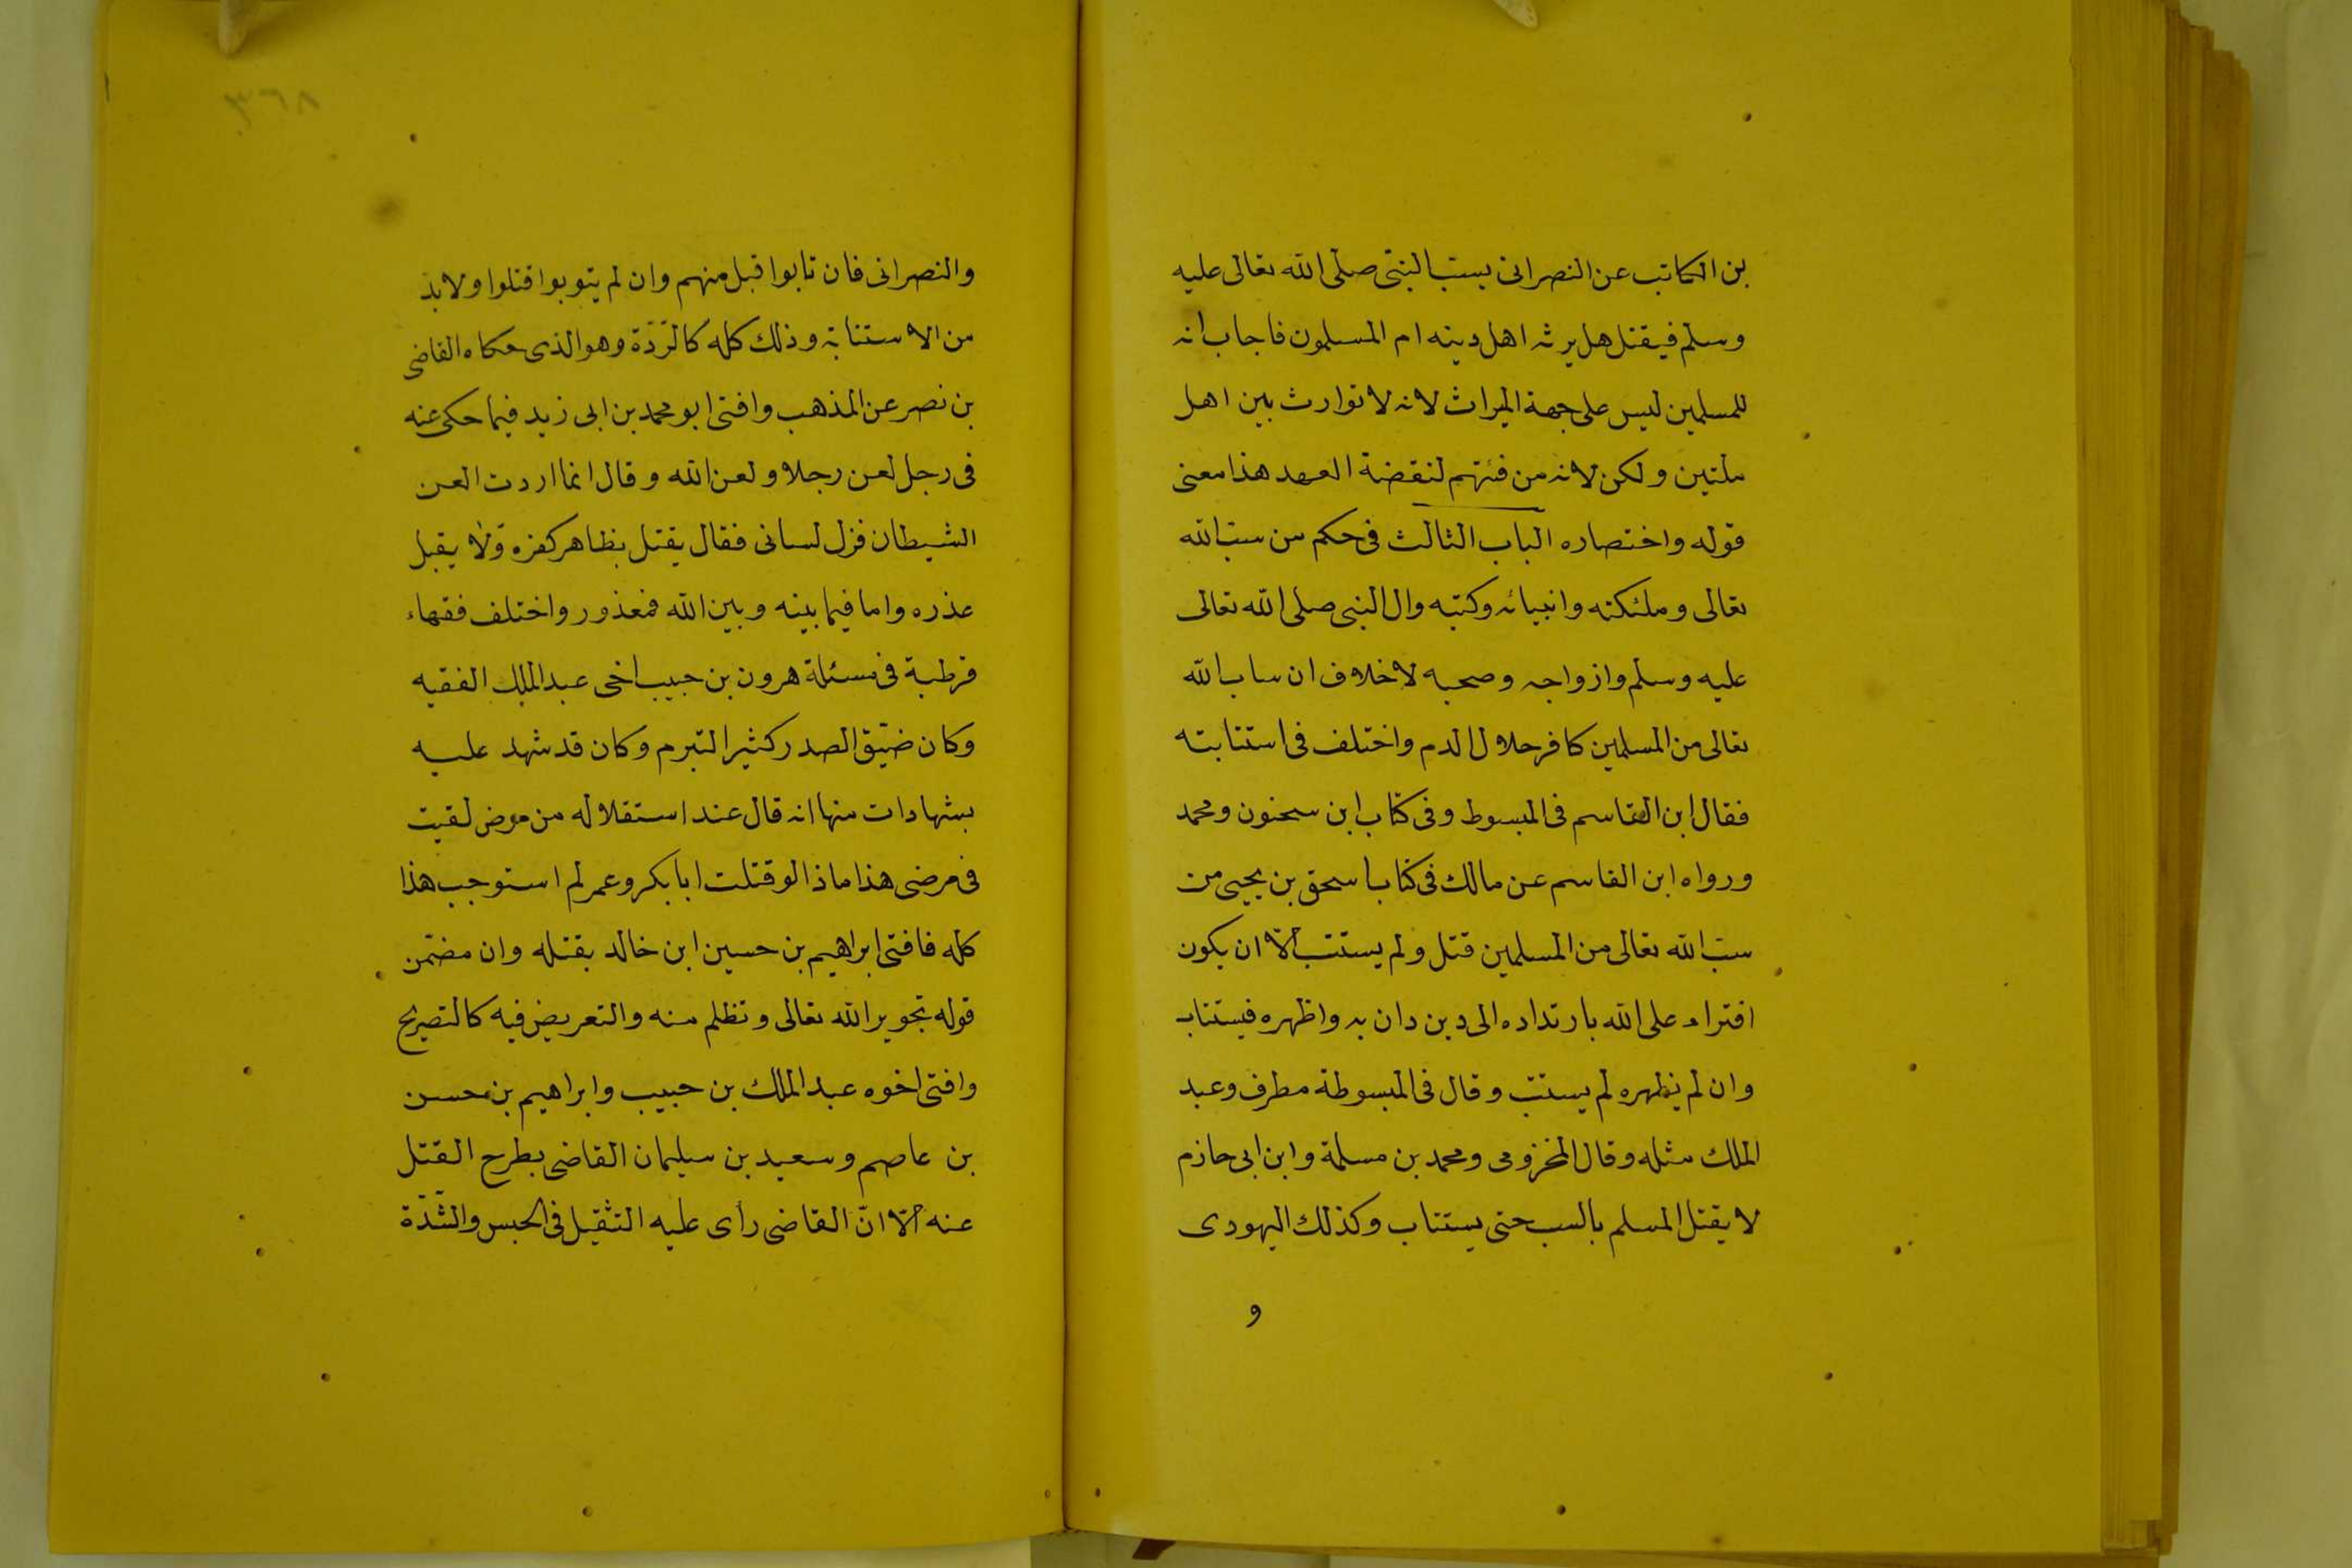 بن الكاتب عن النصرانى يسب النبى صلى الله تعالى عليه
وسلم فيقتل هل يرثه اهل دينه ام المسلمون فاجاب انه
للمسلمين ليس على جهة الميراث لانه لا توارث بين اهل
ملتين ولكن لانه من فئتهم لنقضة العهد هذا معنى
قوله واختصاره الباب الثالث فى حكم من سب الله
تعالى وملئكته وانبيائه وكتبه وال النبى صلى الله تعالى
عليه وسلم وازواجه وصحبه لا خلاف ان ساب الله
تعالى من المسلمين كافر حلال الدم واختلف فى استتابته
فقال ابن القاسم فى المبسوط وفى كتاب ابن سحنون ومحمد
ورواه ابن القاسم عن مالك فى كتاب اسحق بن يحيى من
سب الله تعالى من المسلمين قتل ولم يستتب الّا ان يكون
افتراء على الله بارتداده الى دين دان به واظهره فيستتاب
وان لم يظهره لم يستتب وقال فى المبسوطة مطرف وعبد
الملك مثله وقال المخزومى ومحمد بن مسلمة وابن ابى حازم
لا يقتل المسلم بالسب حتى يستتاب وكذلك اليهودى
و
٣٦٨
والنصرانى فان تابوا قبل منهم وان لم يتوبوا قتلوا ولا بد
من الاستتابة وذلك كله كالرّدّة وهو الذى حكاه القاضى
بن نصر عن المذهب وافتى ابو محمد بن ابى زيد فيما حكى عنه
فى رجل لعن رجلا ولعن الله وقال انما اردت العن
الشيطان فزل لسانى فقال يقتل بظاهر كفره ولا يقبل
عذره واما فيما بينه وبين الله فمعذور واختلف فقهاء
قرطبة فى مسئلة هرون بن حبيب اخى عبد الملك الفقيه
وكان ضيّق الصدر كثير التبرم وكان قد شهد عليه
بشهادات منها انه قال عند استقلاله من مرض لقيت
فى مرضى هذا ماذا لو قتلت ابا بكر وعمر لم استوجب هذا
كله فافتى ابراهيم بن حسين ابن خالد بقتله وان مضمّن
قوله تجوير الله تعالى وتظلم منه والتعريض فيه كالتصريح
وافتى اخوه عبد الملك بن حبيب وابراهيم بن حسن
بن عاصم وسعيد بن سليمان القاضى بطرح القتل
عنه الّا انّ القاضى رأى عليه التثقيل فى الحبس والشّدّة